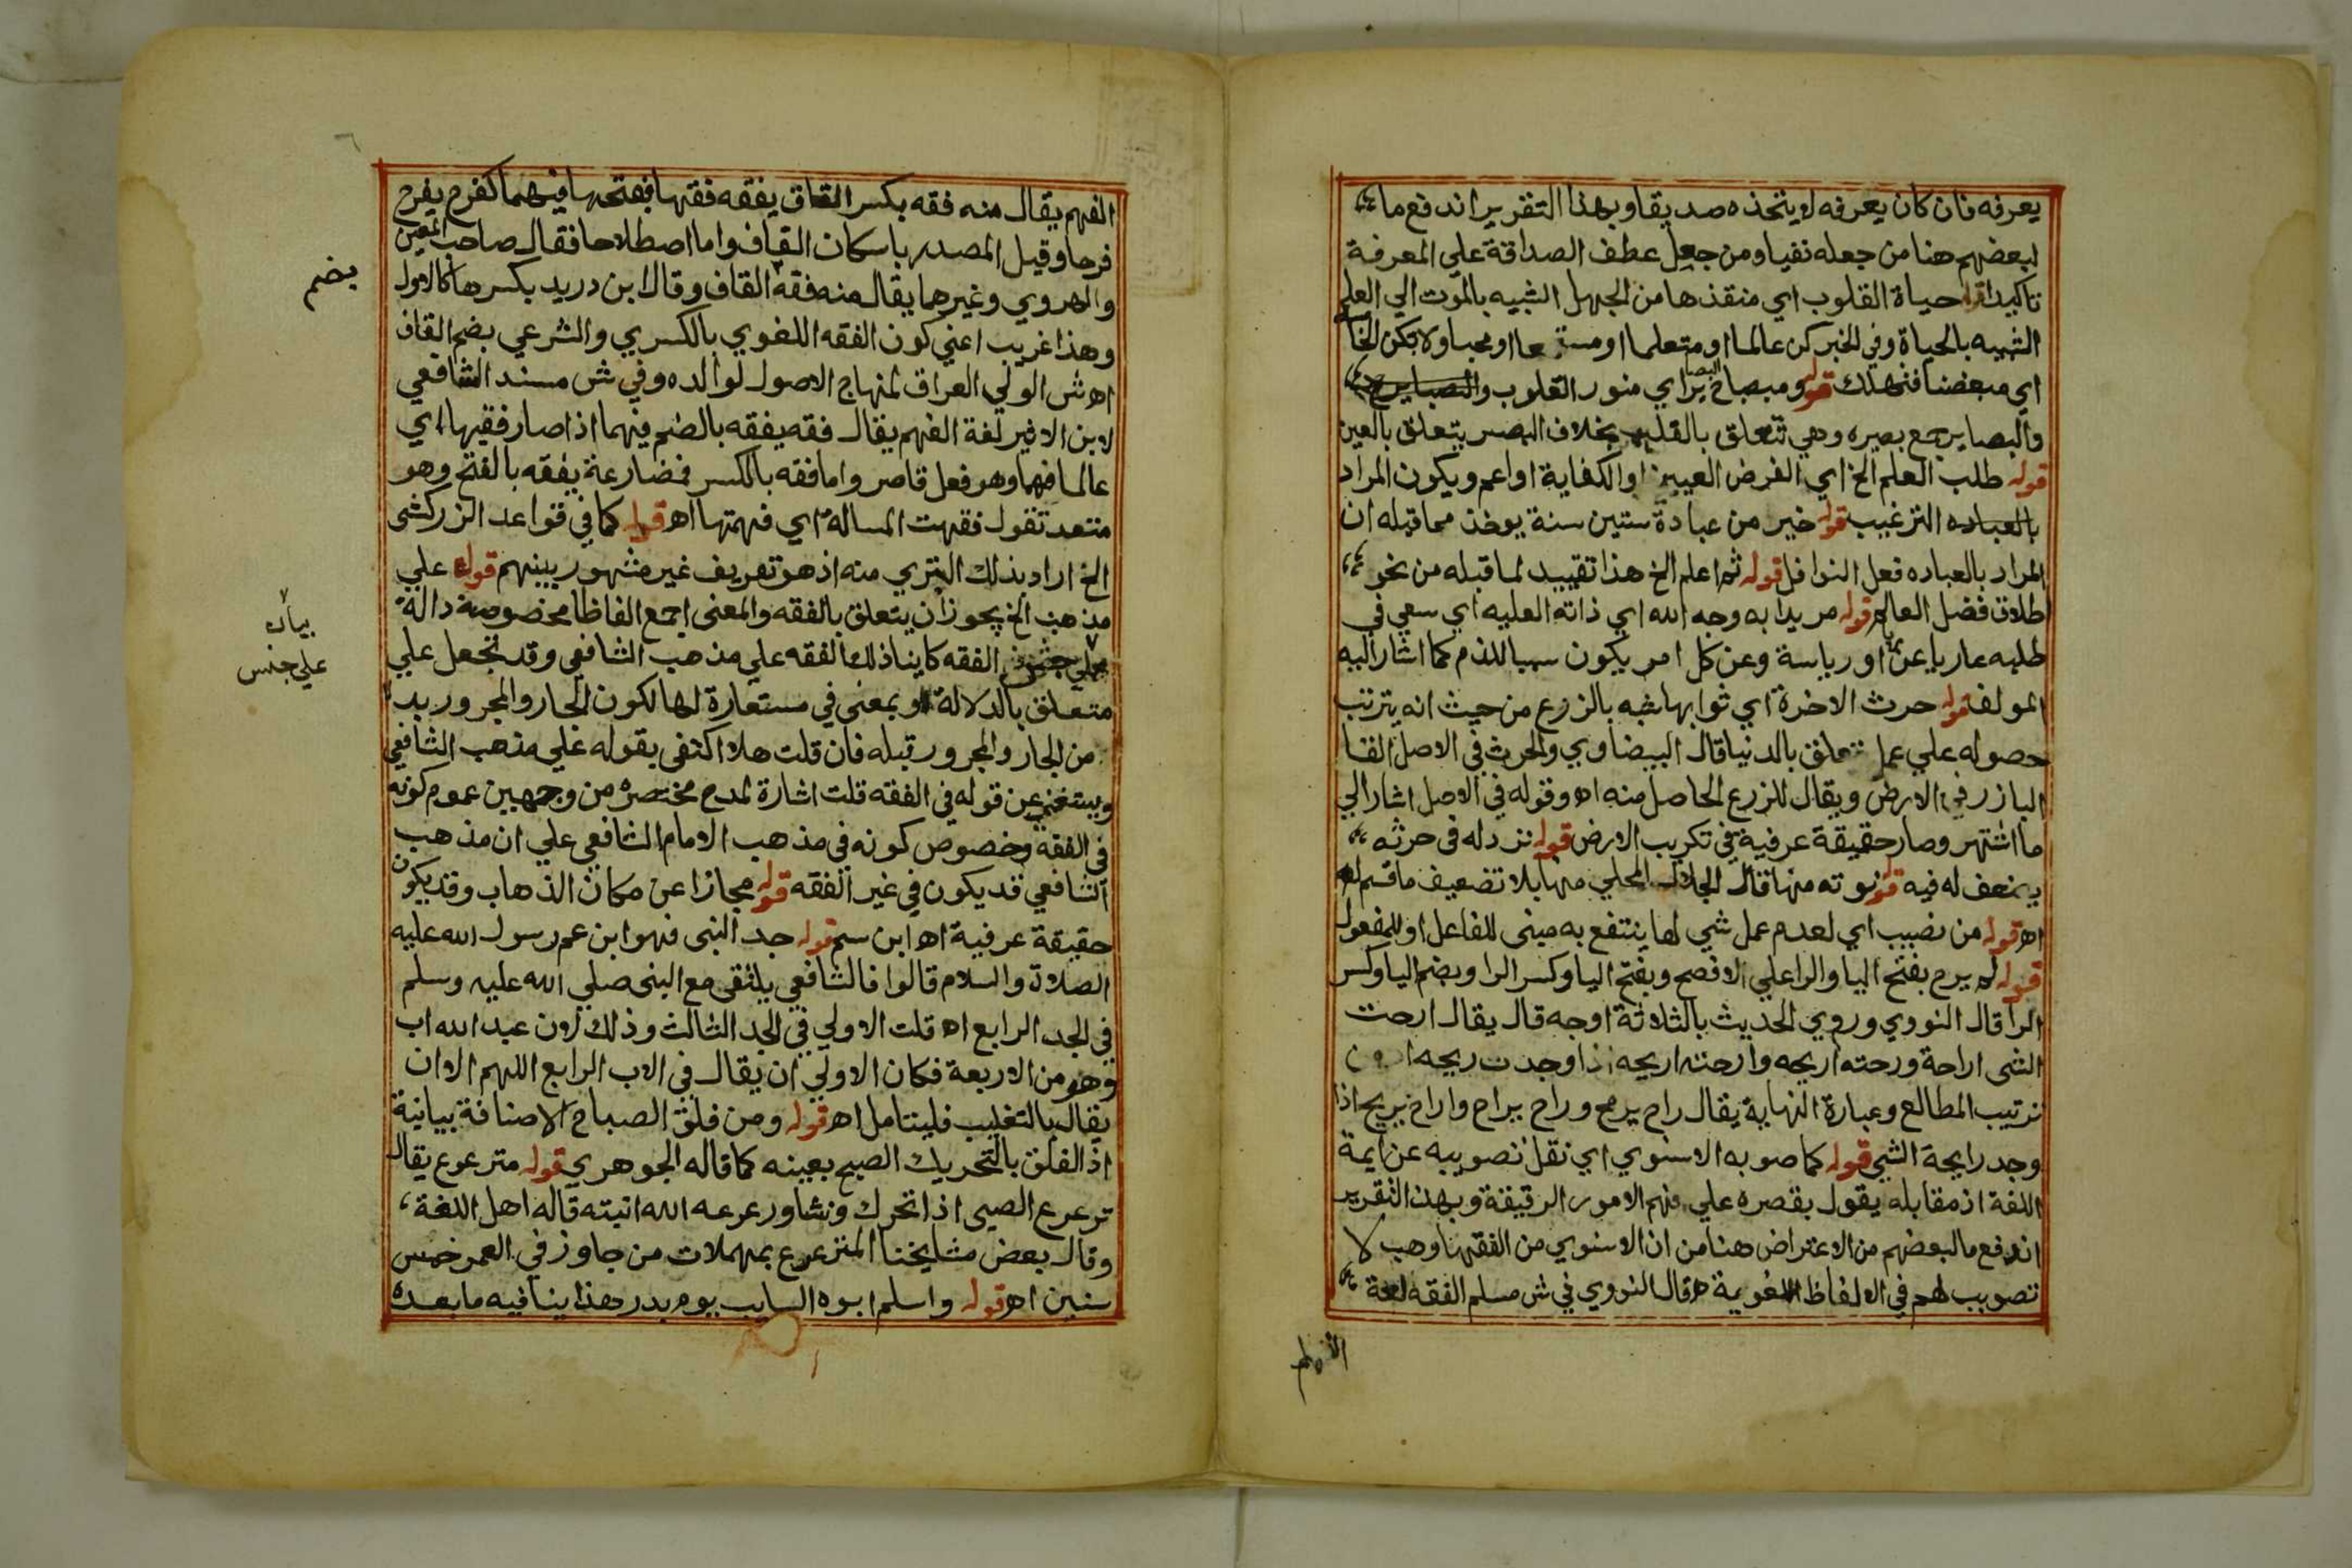 يعرفه فان كان يعرفه لا يتخذه صديقا وبهذا التقرير اندفع ما
لبعضهم هنا من جعله نفيا ومن جعل عطف الصداقة علي المعرفة
تاكيدا قوله حياة القلوب اي منقذها من الجهل الشبيه بالموت الي العلم
الشبيه بالحياة وفي الخبر كن عالما او متعلما او مستمعا او محبا ولا تكن الخامس
اي مبغضا فتهلك قوله ومصباح البصاير اي منور القلوب
والبصاير جمع بصيره وهي تتعلق بالقلب بخلاف البصر يتعلق بالعين
قوله طلب العلم الخ اي الفرض العيني او الكفاية او اعم ويكون المراد
بالعباده الترغيب قوله خير من عبادة ستين سنة يوخذ مما قبله ان
المراد بالعباده فعل النوافل قوله ثم اعلم الخ هذا تقييد لما قبله من نحو
اطلاق فضل العالم قوله مريدا به وجه الله اي ذاته العليه اي سعي في
طلبه عاريا عن ريا او رياسة وعن كل امر يكون سببا للذم كما اشار اليه
المولف قوله حرث الاخرة اي ثوابها شبه بالزرع من حيث انه يترتب
حصوله علي عمل متعلق بالدنيا قال البيضاوي والحرث في الاصل القا
البازر في الارض ويقال للزرع الحاصل منه اه وقوله في الاصل اشار الي
ما اشتهر وصار حقيقة عرفية في تكريب الارض قوله نزد له في حرثه
يضعف له فيه قوله نوته منها قال الجلال المحلي منها بلا تضعيف ما قسم له
اه قوله من نصيب اي لعدم عمل شي لها ينتفع به مبنى للفاعل او للمفعول
قوله لم يرح بفتح اليا والرا علي الافصح وبفتح اليا وكسر الرا وبضم اليا وكسر
الرا قال النووي وروي الحديث بالثلاثة اوجه قال يقال ارحت
الشى اراحة ورحته اريحه وارحته اريحه اذا وجدت ريحه
ترتيب المطالع وعبارة النهاية يقال راح يريح وراح يراح واراح يريح اذا
وجد رايحة الشي قوله كما صوبه الاسنوي اي نقل تصويبه عن ايمة
اللغة اذ مقابله يقول بقصره علي فهم الامور الرقيقة وبهذا التقرير
اندفع ما لبعضهم من الاعتراض هنا من ان الاسنوي من الفقها وهب لا
تصويب لهم في الالفاظ اللغوية اه قال النووي في ش مسلم الفقه لغة
الفهم
الفهم يقال منه فقه بكسر القاف يفقه فقها بفتحها فيهما كفرح يفرح
فرحا وقيل المصدر باسكان القاف واما اصطلاحا فقال صاحب العين
والهروي وغيرهما يقال منه فقه القاف وقال ابن دريد بكسرها كالاول
وهذا غريب اعني كون الفقه اللغوي بالكسري والشرعي بضم القاف
اه ش الولي العراق لمنهاج الاصول لوالده وفي ش مسند الشافعي
لابن الاثير لغة الفهم يقال فقه يفقه بالضم فيهما اذا صار فقيها اي
عالما فهما وهو فعل قاصر واما فقه بالكسر فمضارعة يفقه بالفتح وهو
متعد تقول فقهت المسالة اي فهمتها اه قوله كما في قواعد الزركشى
الخ اراد بذلك التبري منه اذ هو تعريف غير مشهور بينهم قوله علي
مذهب الخ يجوز ان يتعلق بالفقه والمعنى اجمع الفاظا مخصوصة دالة
الفقه كاينا ذلك الفقه علي مذهب الشافعي وقد تجعل علي
متعلق بالدلالة او بمعنى في مستعارة لها لكون الجار والمجرور بدلا
من الجار والمجرور قبله فان قلت هلا اكتفى بقوله علي مذهب الشافعي
ويستغني عن قوله في الفقه قلت اشارة لمدح مختصره من وجهين عموم كونه
في الفقه وخصوص كونه في مذهب الامام الشافعي علي ان مذهب
الشافعي قد يكون في غير الفقه قوله مجازا عن مكان الذهاب وقد يكون
حقيقة عرفية اه ابن سم قوله جد النبى فهو ابن عم رسول الله عليه
الصلاة والسلام قالوا فالشافعي يلتقى مع النبى صلي الله عليه وسلم
في الجد الرابع اه قلت الاولي في الجد الثالث وذلك لان عبد الله اب
وهو من الاربعة فكان الاولي ان يقال في الاب الرابع اللهم الا ان
يقال بالتغليب فليتامل اه قوله ومن فلق الصباح الاضافة بيانية
اذ الفلق بالتحريك الصبح بعينه كما قاله الجوهري قوله مترعرع يقال
ترعرع الصبى اذا تحرك ونشا ورعرعه الله انبته قاله اهل اللغة
وقال بعض مشايخنا المترعرع بمهملات من جاوز في العمر خمس
سنين اه قوله واسلم ابوه السايب يوم بدر هذا ينافيه ما بعده
بضم
بيان
علي جنس